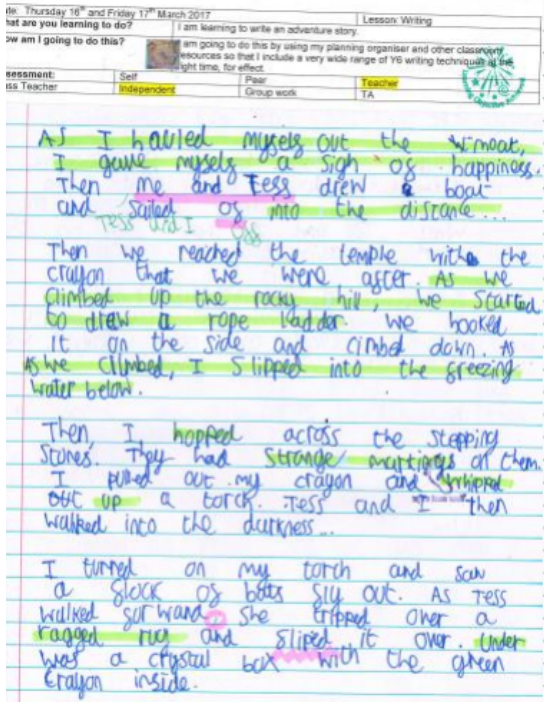 te: Thursday 16th and Friday 17th March 2017 Lesson: Writing
hat are you learning to do? I am learning to write an adventure story.
ow am I going to do this? I am going to do this by using my planning organiser and other classroom
resources so that I include a very wide range of Y6 writing techniques at the
right time, for effect.
sessment: Self Peer Teacher
ss Teacher Independent Group work TA
As I hauled myself out the moat,
I gave myself a sigh of happiness.
Then me and Tess drew a boat
and sailed of into the distance...
Tess and I off
Then we reached the temple with the
crayon that we were after. As we
climbed up the rocky hill, we started
to drew a rope ladder. We hooked
it on the side and cimbd down. As
As we climbed, I slipped into the freezing
water below.
Then, I hopped across the stepping
stones. They had strange on them.
I pulled out my crayon and whipped
out up a torch. Tess and I then
walked into the darkness...
I turned on my torch and saw
a flock of bats fly out. As Tess
walked forward, she tripped over a
ragged rug and fliped it over. Under
was a crystal box with the green
crayon inside.